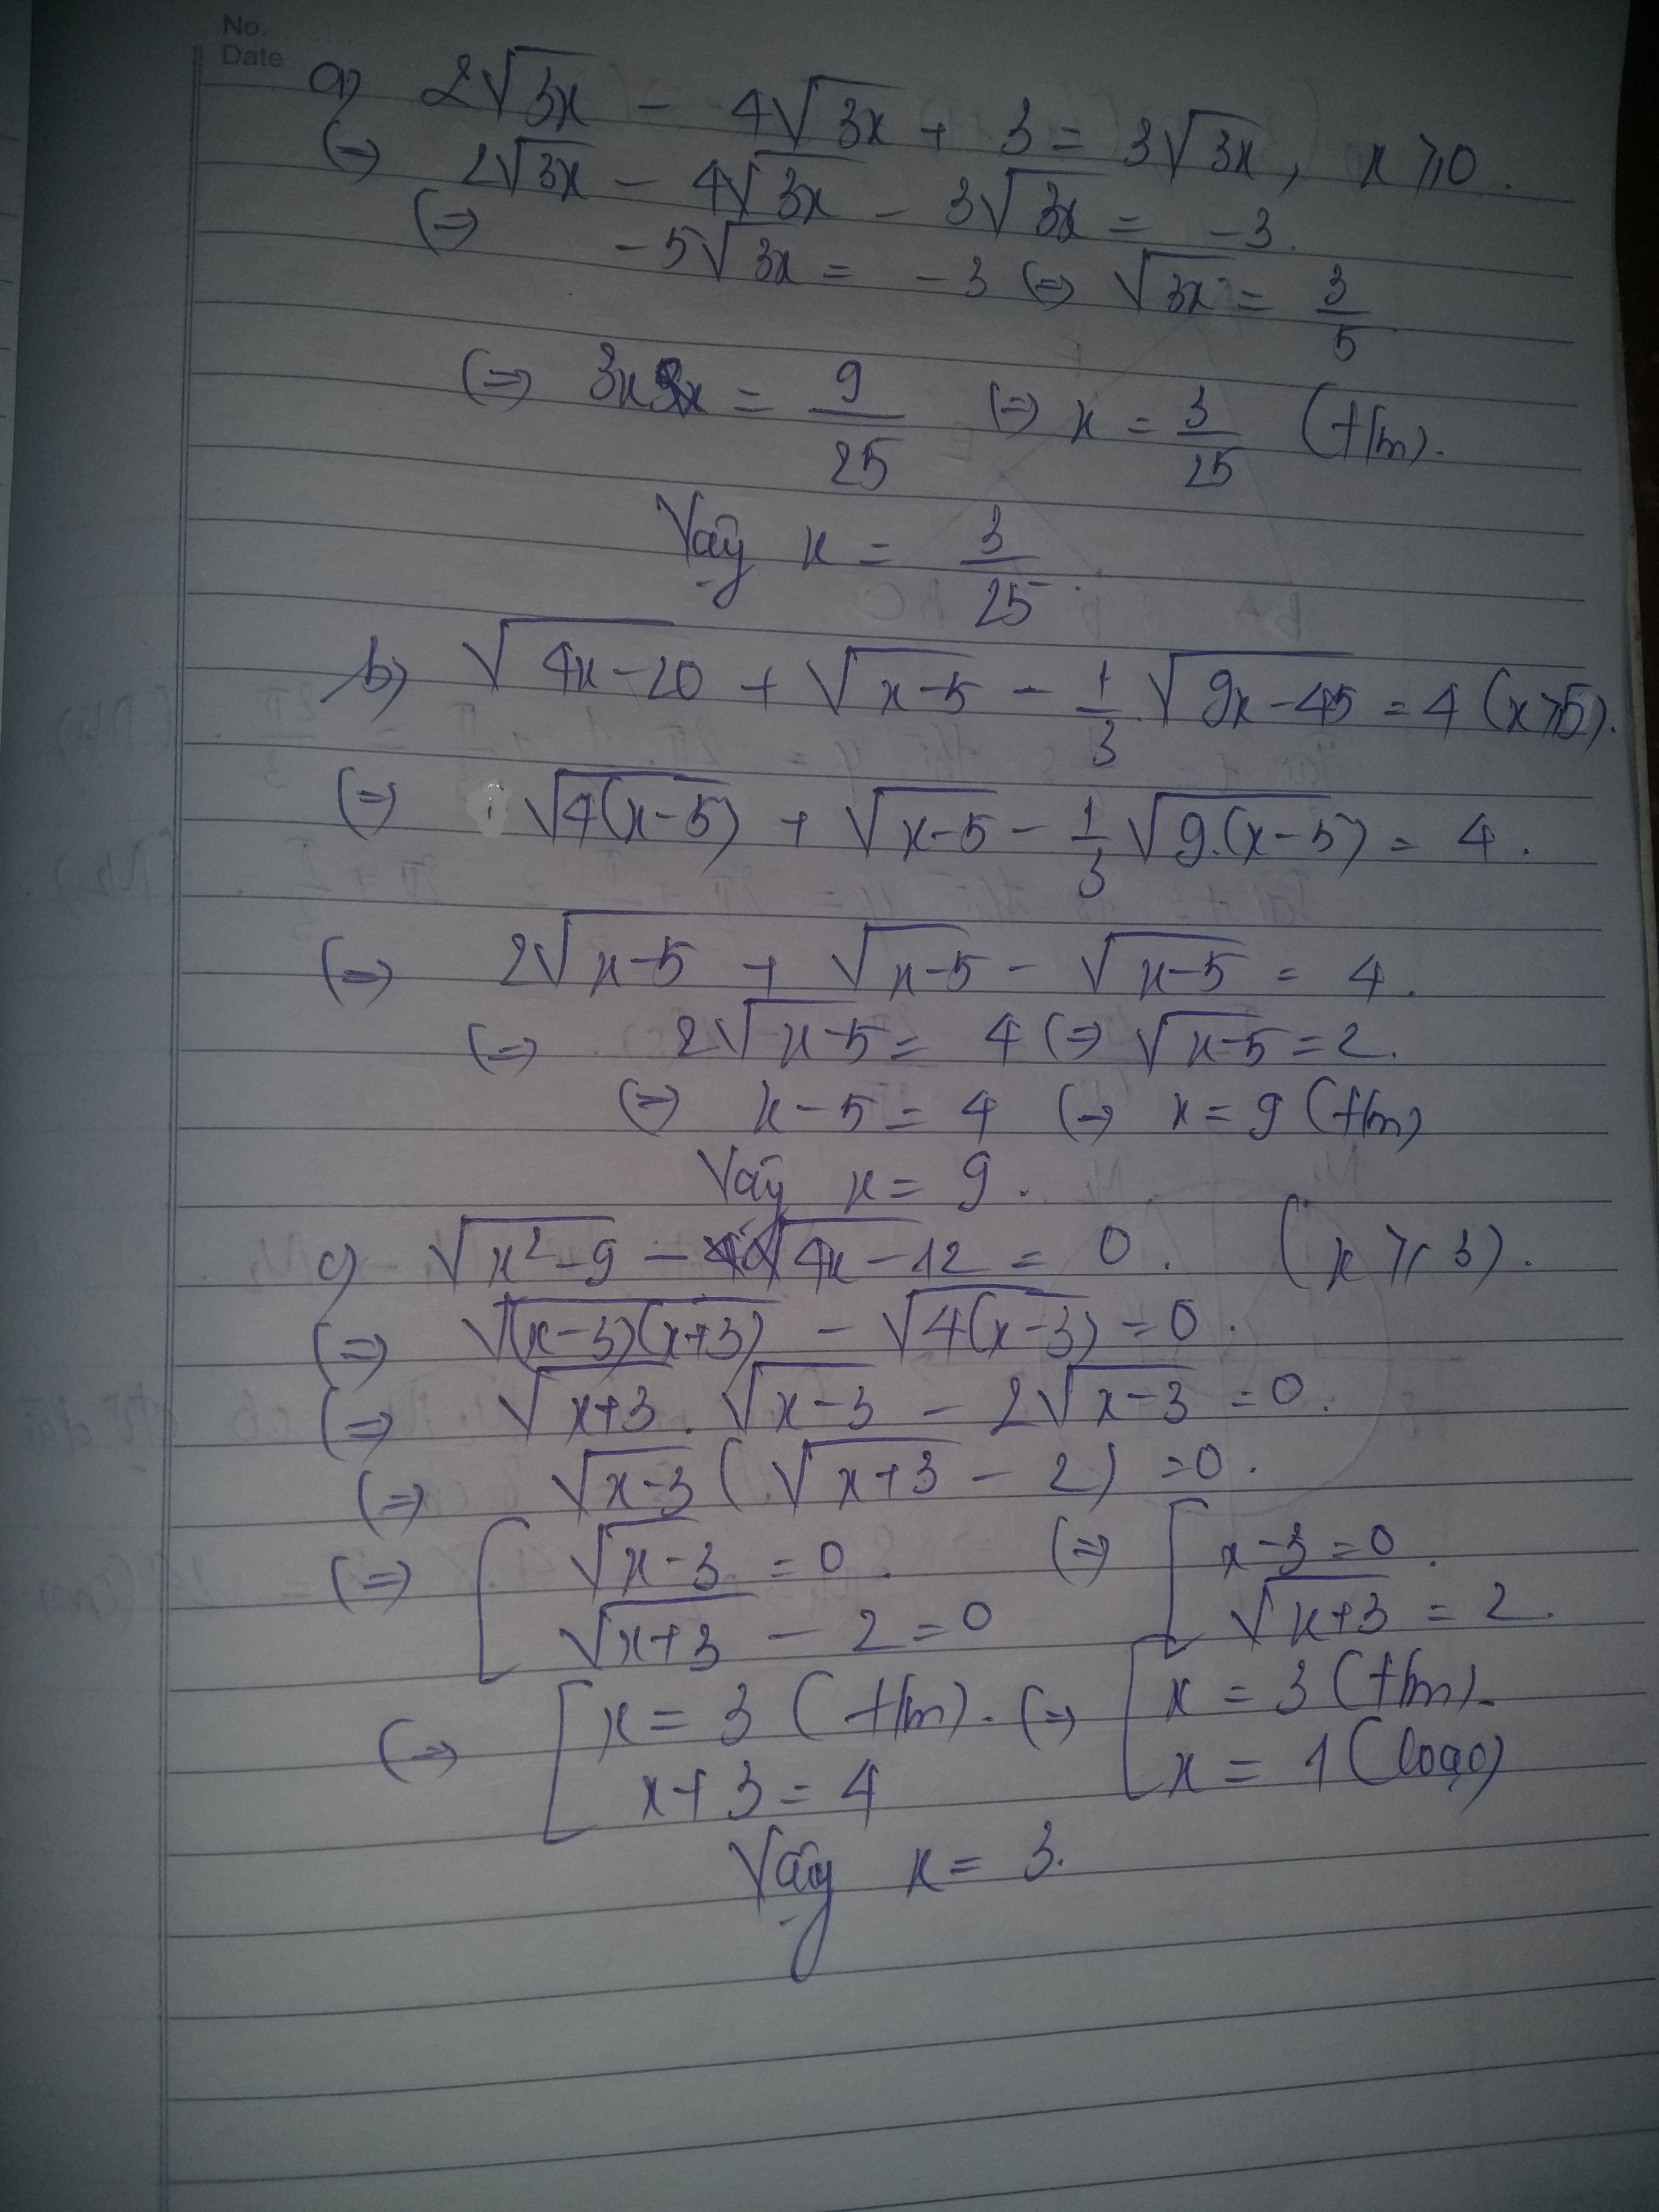 No.
Date
a) 2√3x - 4√3x + 3 = 3√3x, x ≥ 0.
(=) 2√3x - 4√3x - 3√3x = -3.
(=) -5√3x = -3 (=) √3x = 3/5
(=) 3x = 9/25 (=) x = 3/25 (t/m).
Vậy x = 3/25.
b) √(4x-20) + √(x-5) - 1/3 √(9x-45) = 4 (x≥5).
(=) √4(x-5) + √(x-5) - 1/3 √9.(x-5) = 4.
(=) 2√(x-5) + √(x-5) - √(x-5) = 4.
(=) 2√(x-5) = 4 (=) √(x-5) = 2.
(=) x-5 = 4 (=) x = 9 (t/m)
Vậy x = 9.
c) √(x²-9) - √(4x-12) = 0. (x ≥ 3).
(=) √(x-3)(x+3) - √4(x-3) = 0.
(=) √(x+3) . √(x-3) - 2√(x-3) = 0.
(=) √(x-3) (√(x+3) - 2) = 0.
(=) [ √(x-3) = 0. (=) [ x-3 = 0.
√(x+3) - 2 = 0 √(x+3) = 2.
(=) [ x = 3 (t/m). (=) [ x = 3 (t/m).
x+3 = 4 x = 1 (loại)
Vậy x = 3.